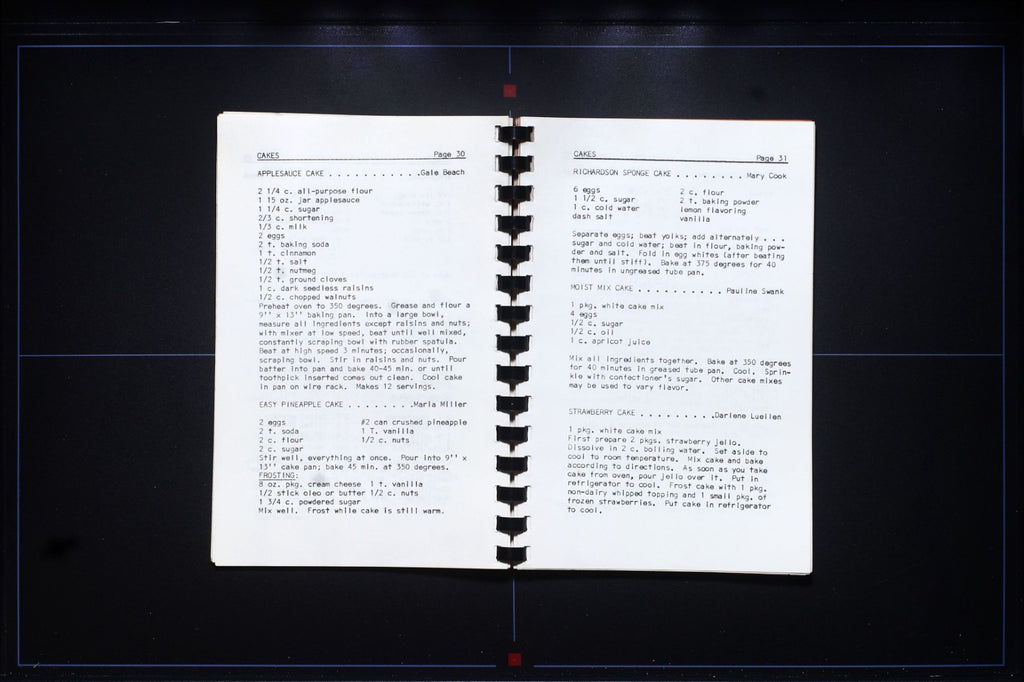 CAKES Page 30
APPLESAUCE CAKE . . . . . . . . . . .Gale Beach
2 1/4 c. all-purpose flour
1 15 oz. jar applesauce
1 1/4 c. sugar
2/3 c. shortening
1/3 c. milk
2 eggs
2 t. baking soda
1 t. cinnamon
1/2 t. salt
1/2 t. nutmeg
1/2 t. ground cloves
1 c. dark seedless raisins
1/2 c. chopped walnuts
Preheat oven to 350 degrees. Grease and flour a
9'' x 13'' baking pan. Into a large bowl,
measure all ingredients except raisins and nuts;
with mixer at low speed, beat until well mixed,
constantly scraping bowl with rubber spatula.
Beat at high speed 3 minutes; occasionally,
scraping bowl. Stir in raisins and nuts. Pour
batter into pan and bake 40-45 min. or until
toothpick inserted comes out clean. Cool cake
in pan on wire rack. Makes 12 servings.
EASY PINEAPPLE CAKE . . . . . . . .Maria Miller
2 eggs #2 can crushed pineapple
2 t. soda 1 T. vanilla
2 c. flour 1/2 c. nuts
2 c. sugar
Stir well, everything at once. Pour into 9'' x
13'' cake pan; bake 45 min. at 350 degrees.
FROSTING:
8 oz. pkg. cream cheese 1 t. vanilla
1/2 stick oleo or butter 1/2 c. nuts
1 3/4 c. powdered sugar
Mix well. Frost while cake is still warm.
CAKES Page 31
RICHARDSON SPONGE CAKE . . . . . . . . Mary Cook
6 eggs 2 c. flour
1 1/2 c. sugar 2 t. baking powder
1 c. cold water lemon flavoring
dash salt vanilla
Separate eggs; beat yolks; add alternately . . .
sugar and cold water; beat in flour, baking pow-
der and salt. Fold in egg whites (after beating
them until stiff). Bake at 375 degrees for 40
minutes in ungreased tube pan.
MOIST MIX CAKE . . . . . . . . . . Pauline Swank
1 pkg. white cake mix
4 eggs
1/2 c. sugar
1/2 c. oil
1 c. apricot juice
Mix all ingredients together. Bake at 350 degrees
for 40 minutes in greased tube pan. Cool. Sprin-
kle with confectioner's sugar. Other cake mixes
may be used to vary flavor.
STRAWBERRY CAKE . . . . . . . . .Darlene Luellen
1 pkg. white cake mix
First prepare 2 pkgs. strawberry jello.
Dissolve in 2 c. boiling water. Set aside to
cool to room temperature. Mix cake and bake
according to directions. As soon as you take
cake from oven, pour jello over it. Put in
refrigerator to cool. Frost cake with 1 pkg.
non-dairy whipped topping and 1 small pkg. of
frozen strawberries. Put cake in refrigerator
to cool.